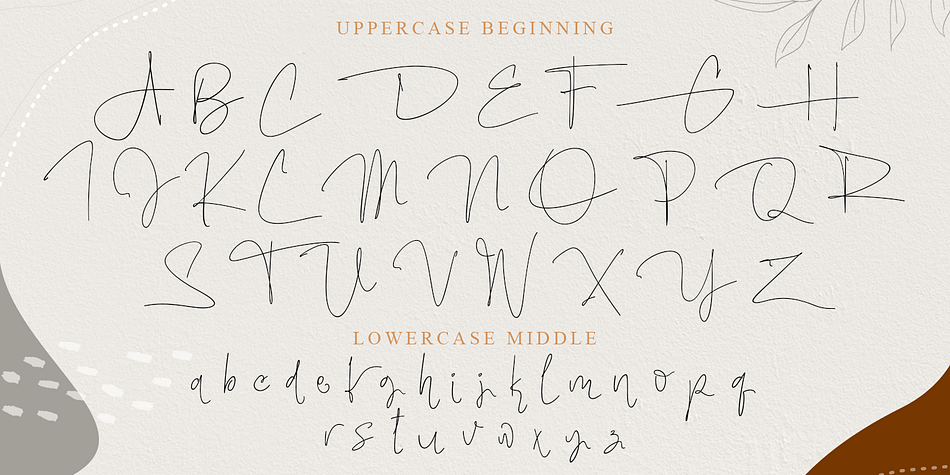 UPPERCASE BEGINNING
A B C D E F G H
I J K L M N O P Q R
S T U V W X Y Z
LOWERCASE MIDDLE
a b c d e f g h i j k l m n o p q
r s t u v w x y z